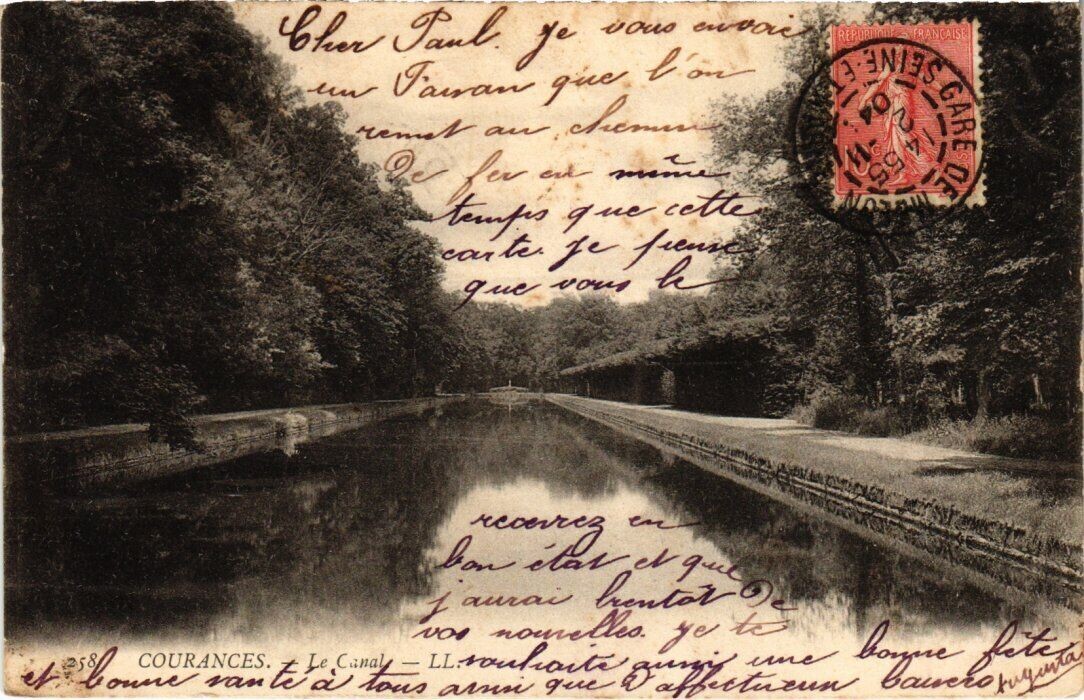 Cher Paul. Je vous envoi
un Faisan que l'on
remet au chemin
De fer en même
temps que cette
carte. Je pense
que vous le
RÉPUBLIQUE FRANÇAISE
GARE DE MELUN
SEINE-ET-MARNE
recevrez en
bon état et que
j'aurai bientôt De
vos nouvelles. Je te
258 COURANCES. — Le Canal. — LL.
souhaite aussi une bonne fête
et bonne santé à tous ainsi que D'affectueux baisers